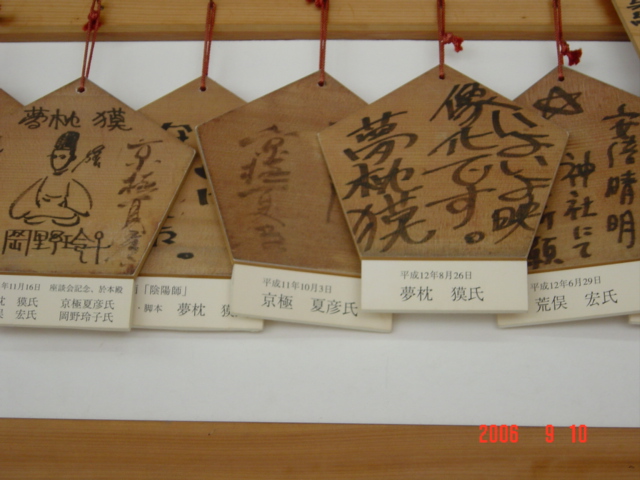 夢枕 獏
京極夏彦
岡野玲子
年11月16日 座談会記念、於本殿
枕 獏氏 京極夏彦氏
宏氏 岡野玲子氏
「陰陽師」
・脚本 夢枕 獏
京極夏彦
平成11年10月3日
京極 夏彦氏
いよいよ映
像化です。
夢枕獏
平成12年8月26日
夢枕 獏氏
安倍晴明
神社にて
祈願
平成12年6月29日
荒俣 宏氏
2006 9 10